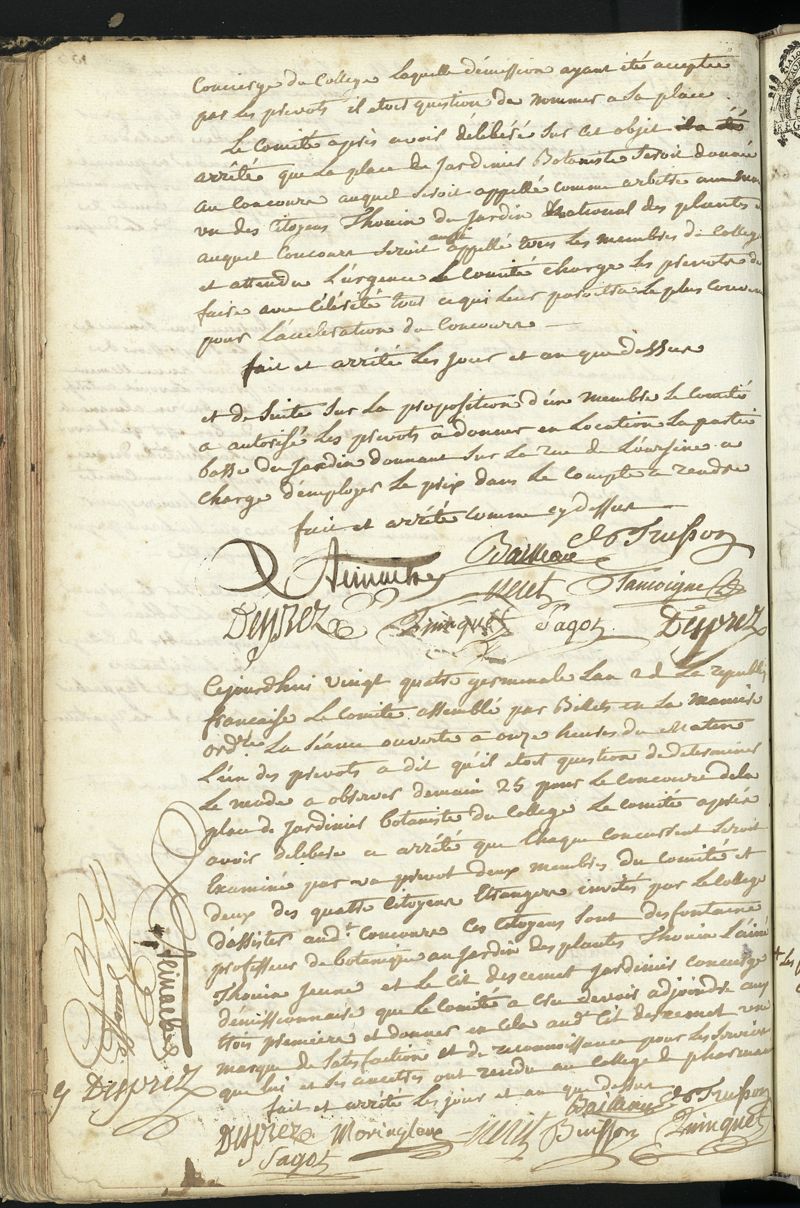 Concierge du College laquelle démission ayant été acceptée
par les prevots il etoit question de nommer a sa place
Le Comité après avoir délibéré sur cet objet
arrêté que la place de Jardinier Botaniste seroit donnée
au concours auquel seroit appellé comme arbitre
un des Citoyens Thouin du Jardin National des plantes
auquel concours seroit aussi appellé tous les membres du College
et attendu l'urgence le Comité charge les prevots de
faire avec célérité tout ce qui leur paroitra le plus
pour l'acceleration du Concours
fait et arrêté les jour et an que dessus
et de suite sur la proposition d'un membre le Comité
a autorisé les prevots a donner en location la partie
basse du Jardin donnant sur la rue de l'oursine a
charge d'employer le prix dans le compte a rendre
fait et arrêté comme cy dessus
Bailleau Trusson
Nachet Tassoigne
Desprez Quinquet Pagot Desprez
Cejourdhui vingt quatre germinale l'an 2d de la republ
francaise le Comité assemblé par Billets en la maniere
ordre la séance ouverte a onze heures du Matin
l'un des prevots a dit qu'il etoit question de determiner
le mode a observer demain 25 pour le concours de la
place de Jardinier botaniste du College le Comité après
avoir délibéré a arrêté que chaque concurrent seroit
Examiné par un prevot deux membres du Comité et
deux des quatre Citoyens Etrangers invités par le College
d'assister audt Concours ces Citoyens sont desfontaine
professeur de botanique au Jardin des plantes Thouin l'ainé
Thouin Jeune et le Cit descemet Jardinier concierge
démissionnaire que le Comité a cru devoir adjoindre aux
trois premiers et donner en cela audt Cit descemet une
marque de satisfaction et de reconnoissance pour les services
que lui et ses ancetres ont rendu au college de pharmacie
fait et arrêté les jour et an que dessus
Bailleau Trusson
Desprez Moringlane Buisson Quinquet
Pagot
Desprez